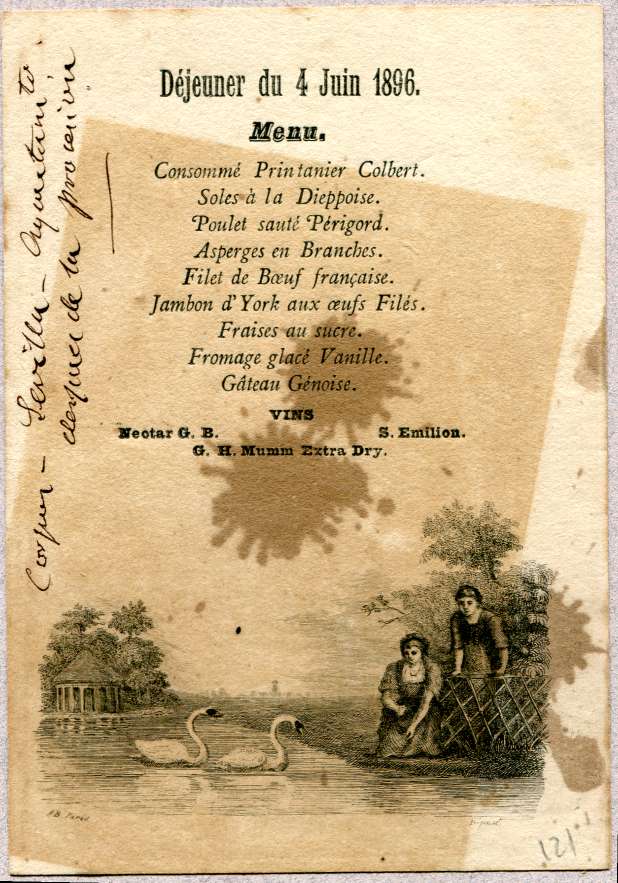 Déjeuner du 4 Juin 1896.
Menu.
Consommé Printanier Colbert.
Soles à la Dieppoise.
Poulet sauté Périgord.
Asperges en Branches.
Filet de Bœuf française.
Jambon d'York aux œufs Filés.
Fraises au sucre.
Fromage glacé Vanille.
Gâteau Génoise.
VINS
Nectar G. B. S. Emilion.
G. H. Mumm Extra Dry.
Corpus - Sevilla - Ayuntamto.
despues de la procesión
121